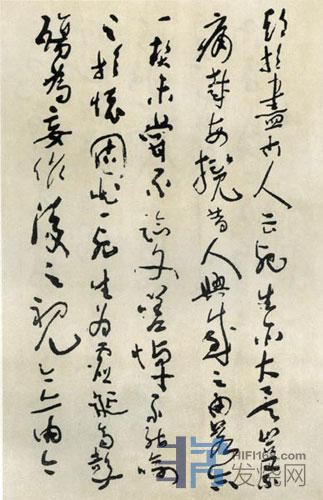 期於盡古人云死生亦大矣豈不
痛哉每攬昔人興感之由若合
一契未嘗不臨文嗟悼不能喻
之於懷固知一死生為虛誕齊彭
殤為妄作後之視今亦由今
HIFI168.com
发烧网